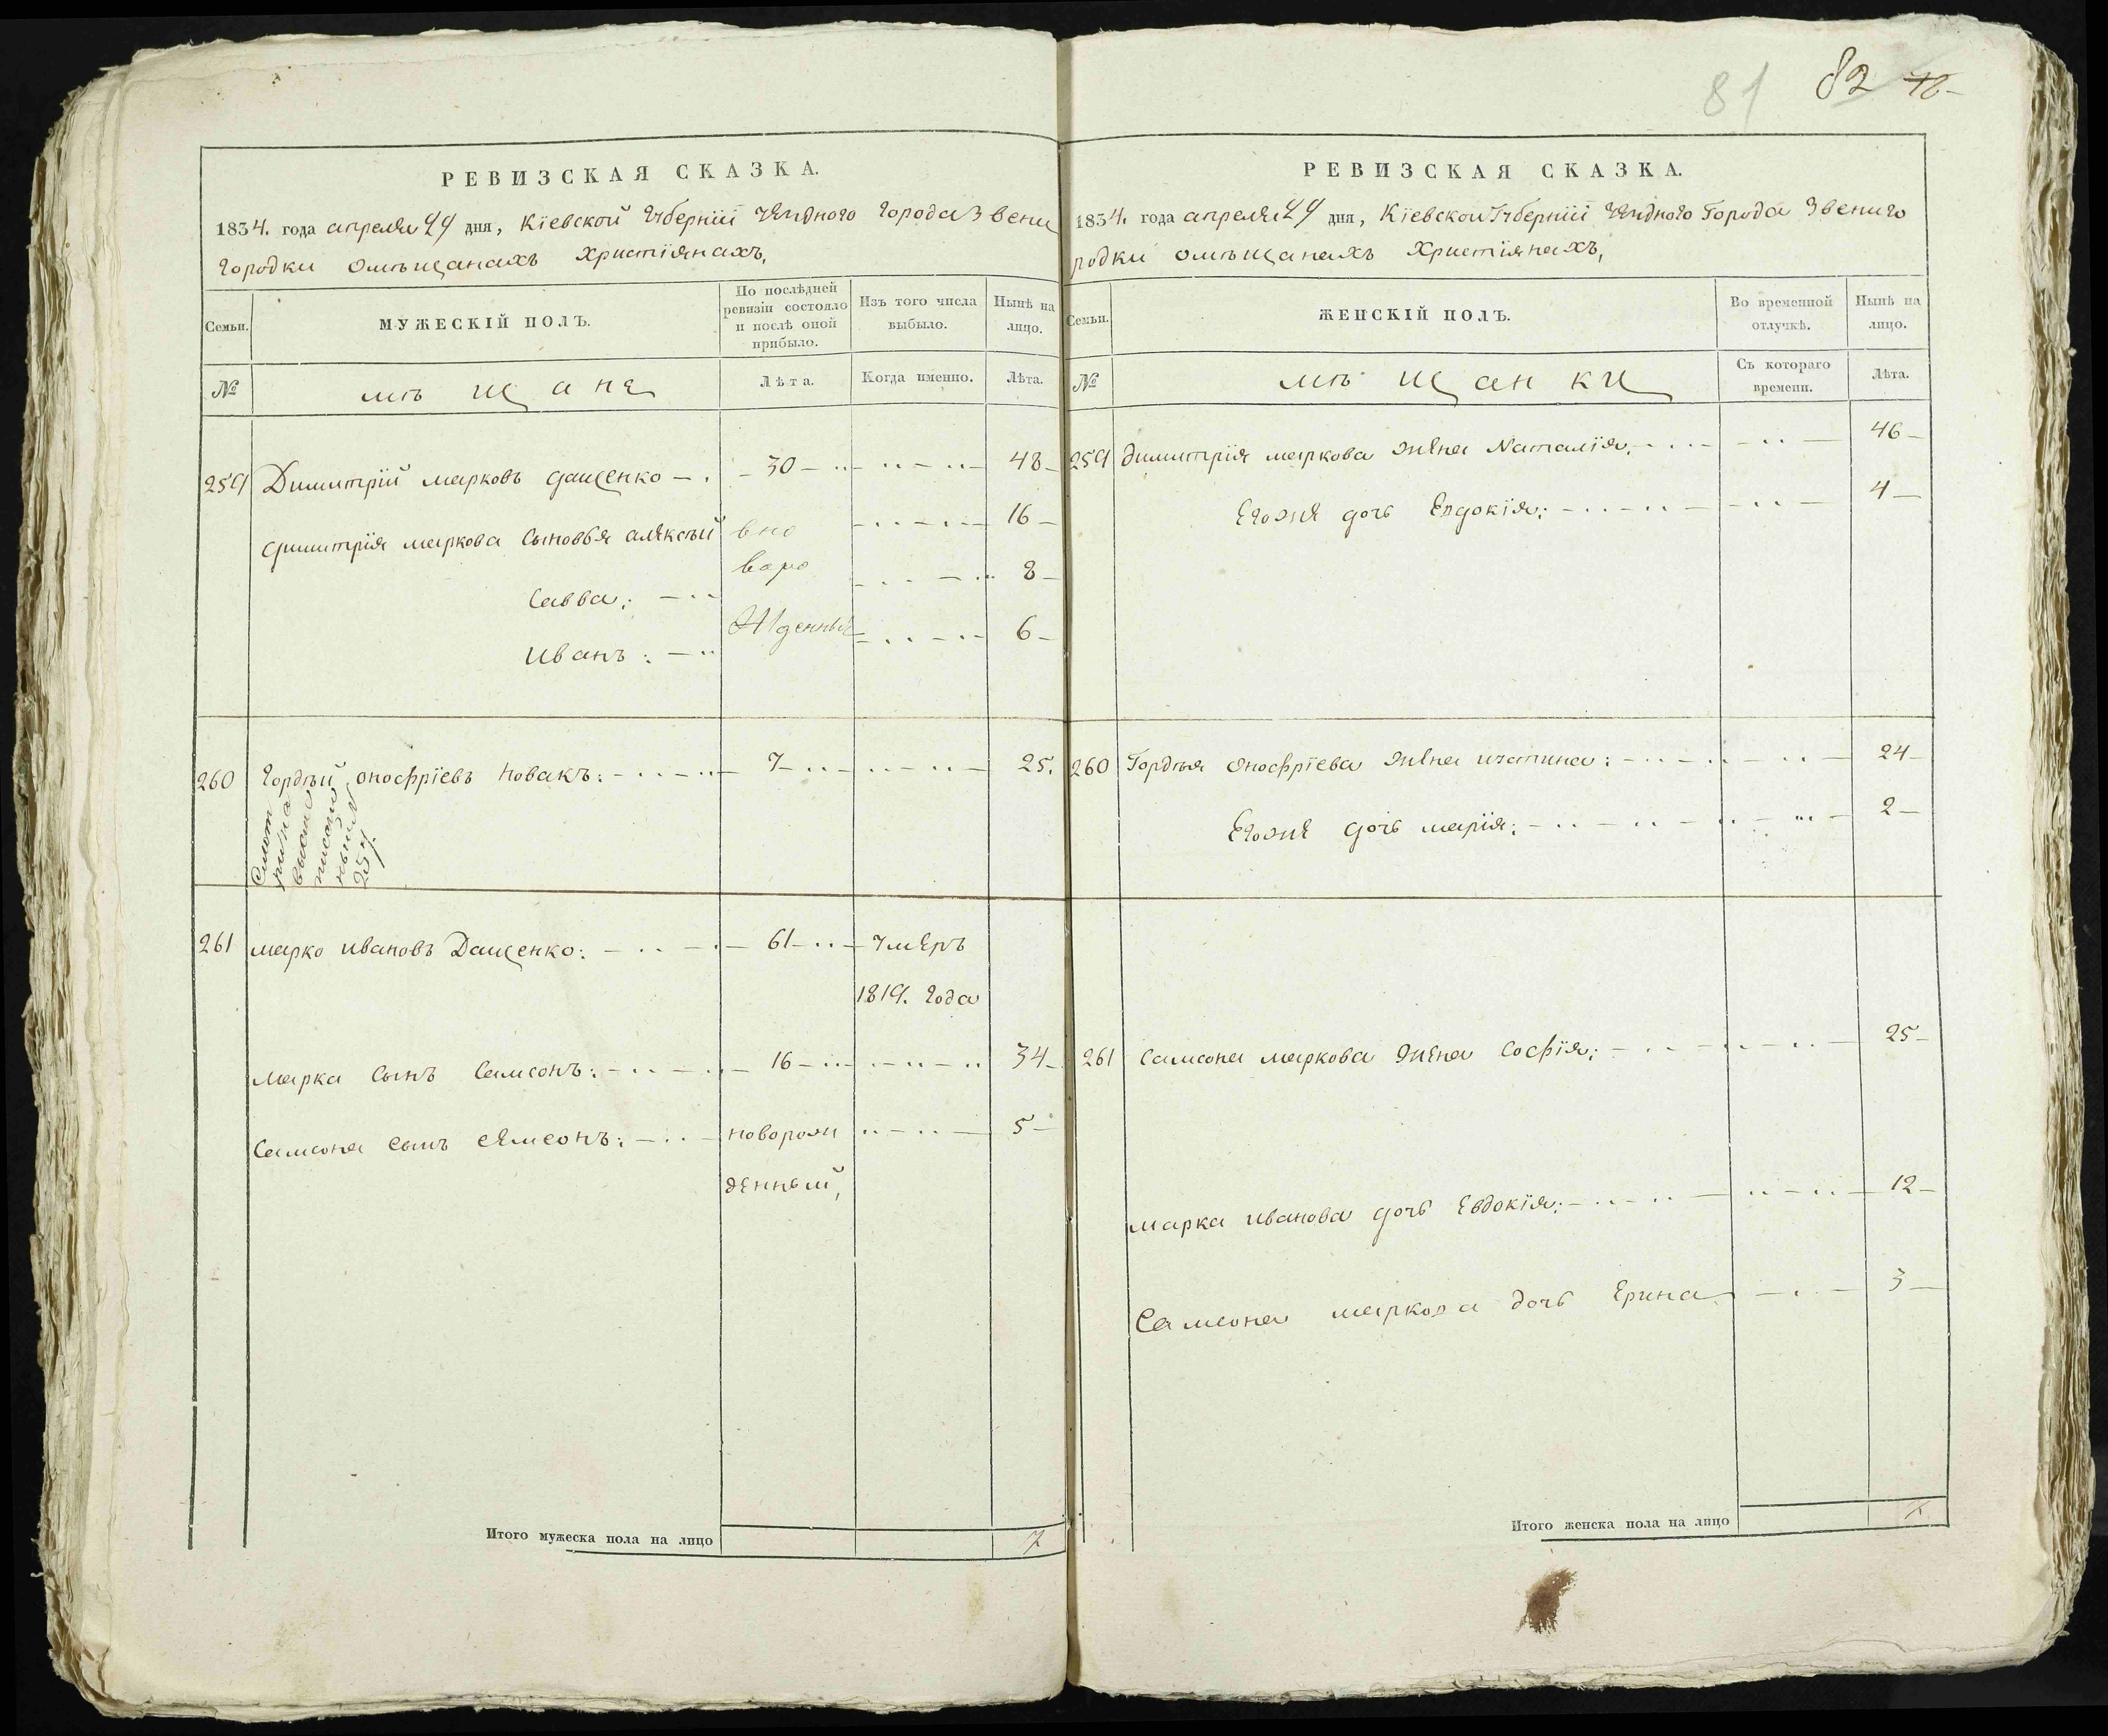 81 82 76
РЕВИЗСКАЯ СКАЗКА.
1834. года апреля 29 дня, Кіевской Губерніи уезднаго города Звени
городки омѣщанахъ христіянахъ,
Семьи. МУЖЕСКІЙ ПОЛЪ. По послѣдней ревизіи состояло и послѣ оной прибыло. Изъ того числа выбыло. Нынѣ на лицо.
№ мѣщане Лѣта. Когда именно. Лѣта.
259 Димитрій марковъ дащенко 30 48
димитрія маркова сыновья алексѣй вно 16
Савва: воро 8
Иванъ: жденныя 6
260 Гордѣй онофріевъ новакъ: 7 25.
261 марко ивановъ Дащенко: 61 умеръ
1819. года
марка сынъ Самсонъ: 16 34
Самсона сынъ сямсонъ: новорож 5
денный,
Итого мужеска пола на лицо 7
РЕВИЗСКАЯ СКАЗКА.
1834. года апреля 29 дня, Кіевской Губерніи уезднаго Города Звениго
родки омѣщанахъ христіянахъ,
Семьи. ЖЕНСКІЙ ПОЛЪ. Во временной отлучкѣ. Нынѣ на лицо.
№ мѣщанки Съ котораго времени. Лѣта.
259 димитрія маркова жена Наталія, 46
Егоже дочь Евдокія: 4
260 Гордѣя онофріева жена 24
Егоже дочь марія: 2
261 Самсона маркова жена Софія: 25
марка иванова дочь Евдокія: 12
Самсона маркова дочь Ерина 3
Итого женска пола на лицо 7